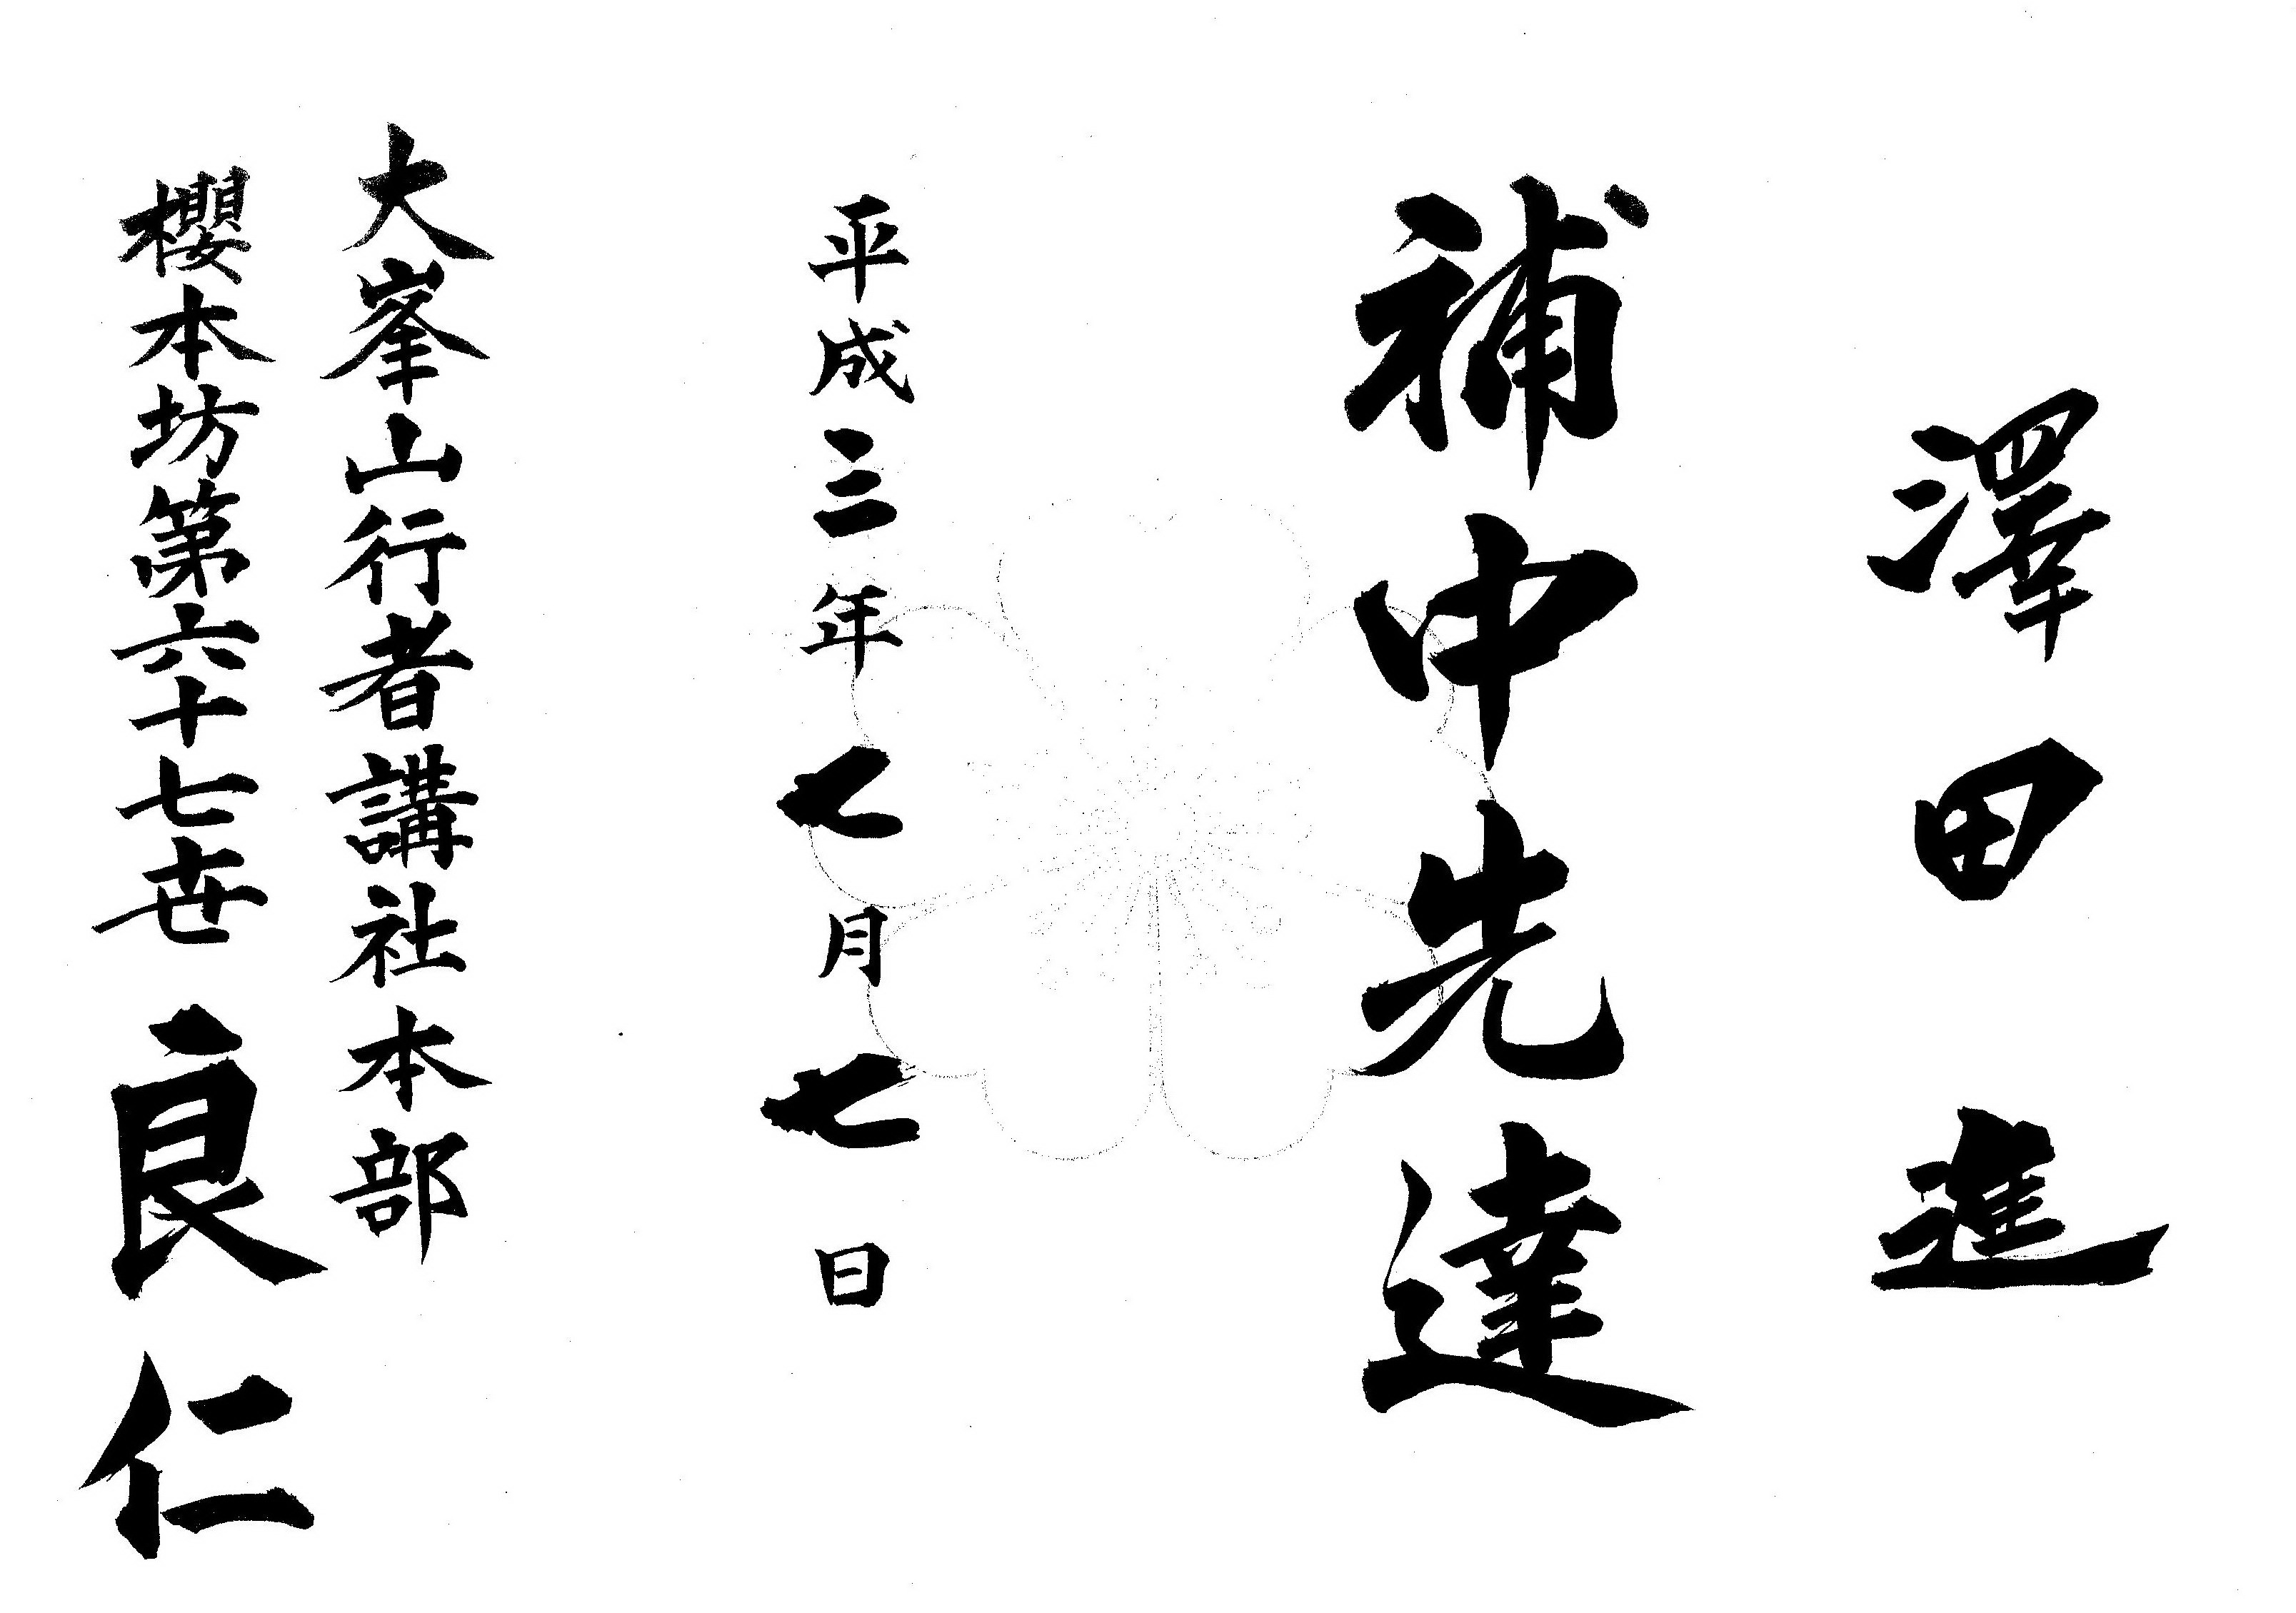 澤田進
補中先達
平成三年七月七日
大峯山行者講社本部
櫻本坊第六十七世良仁